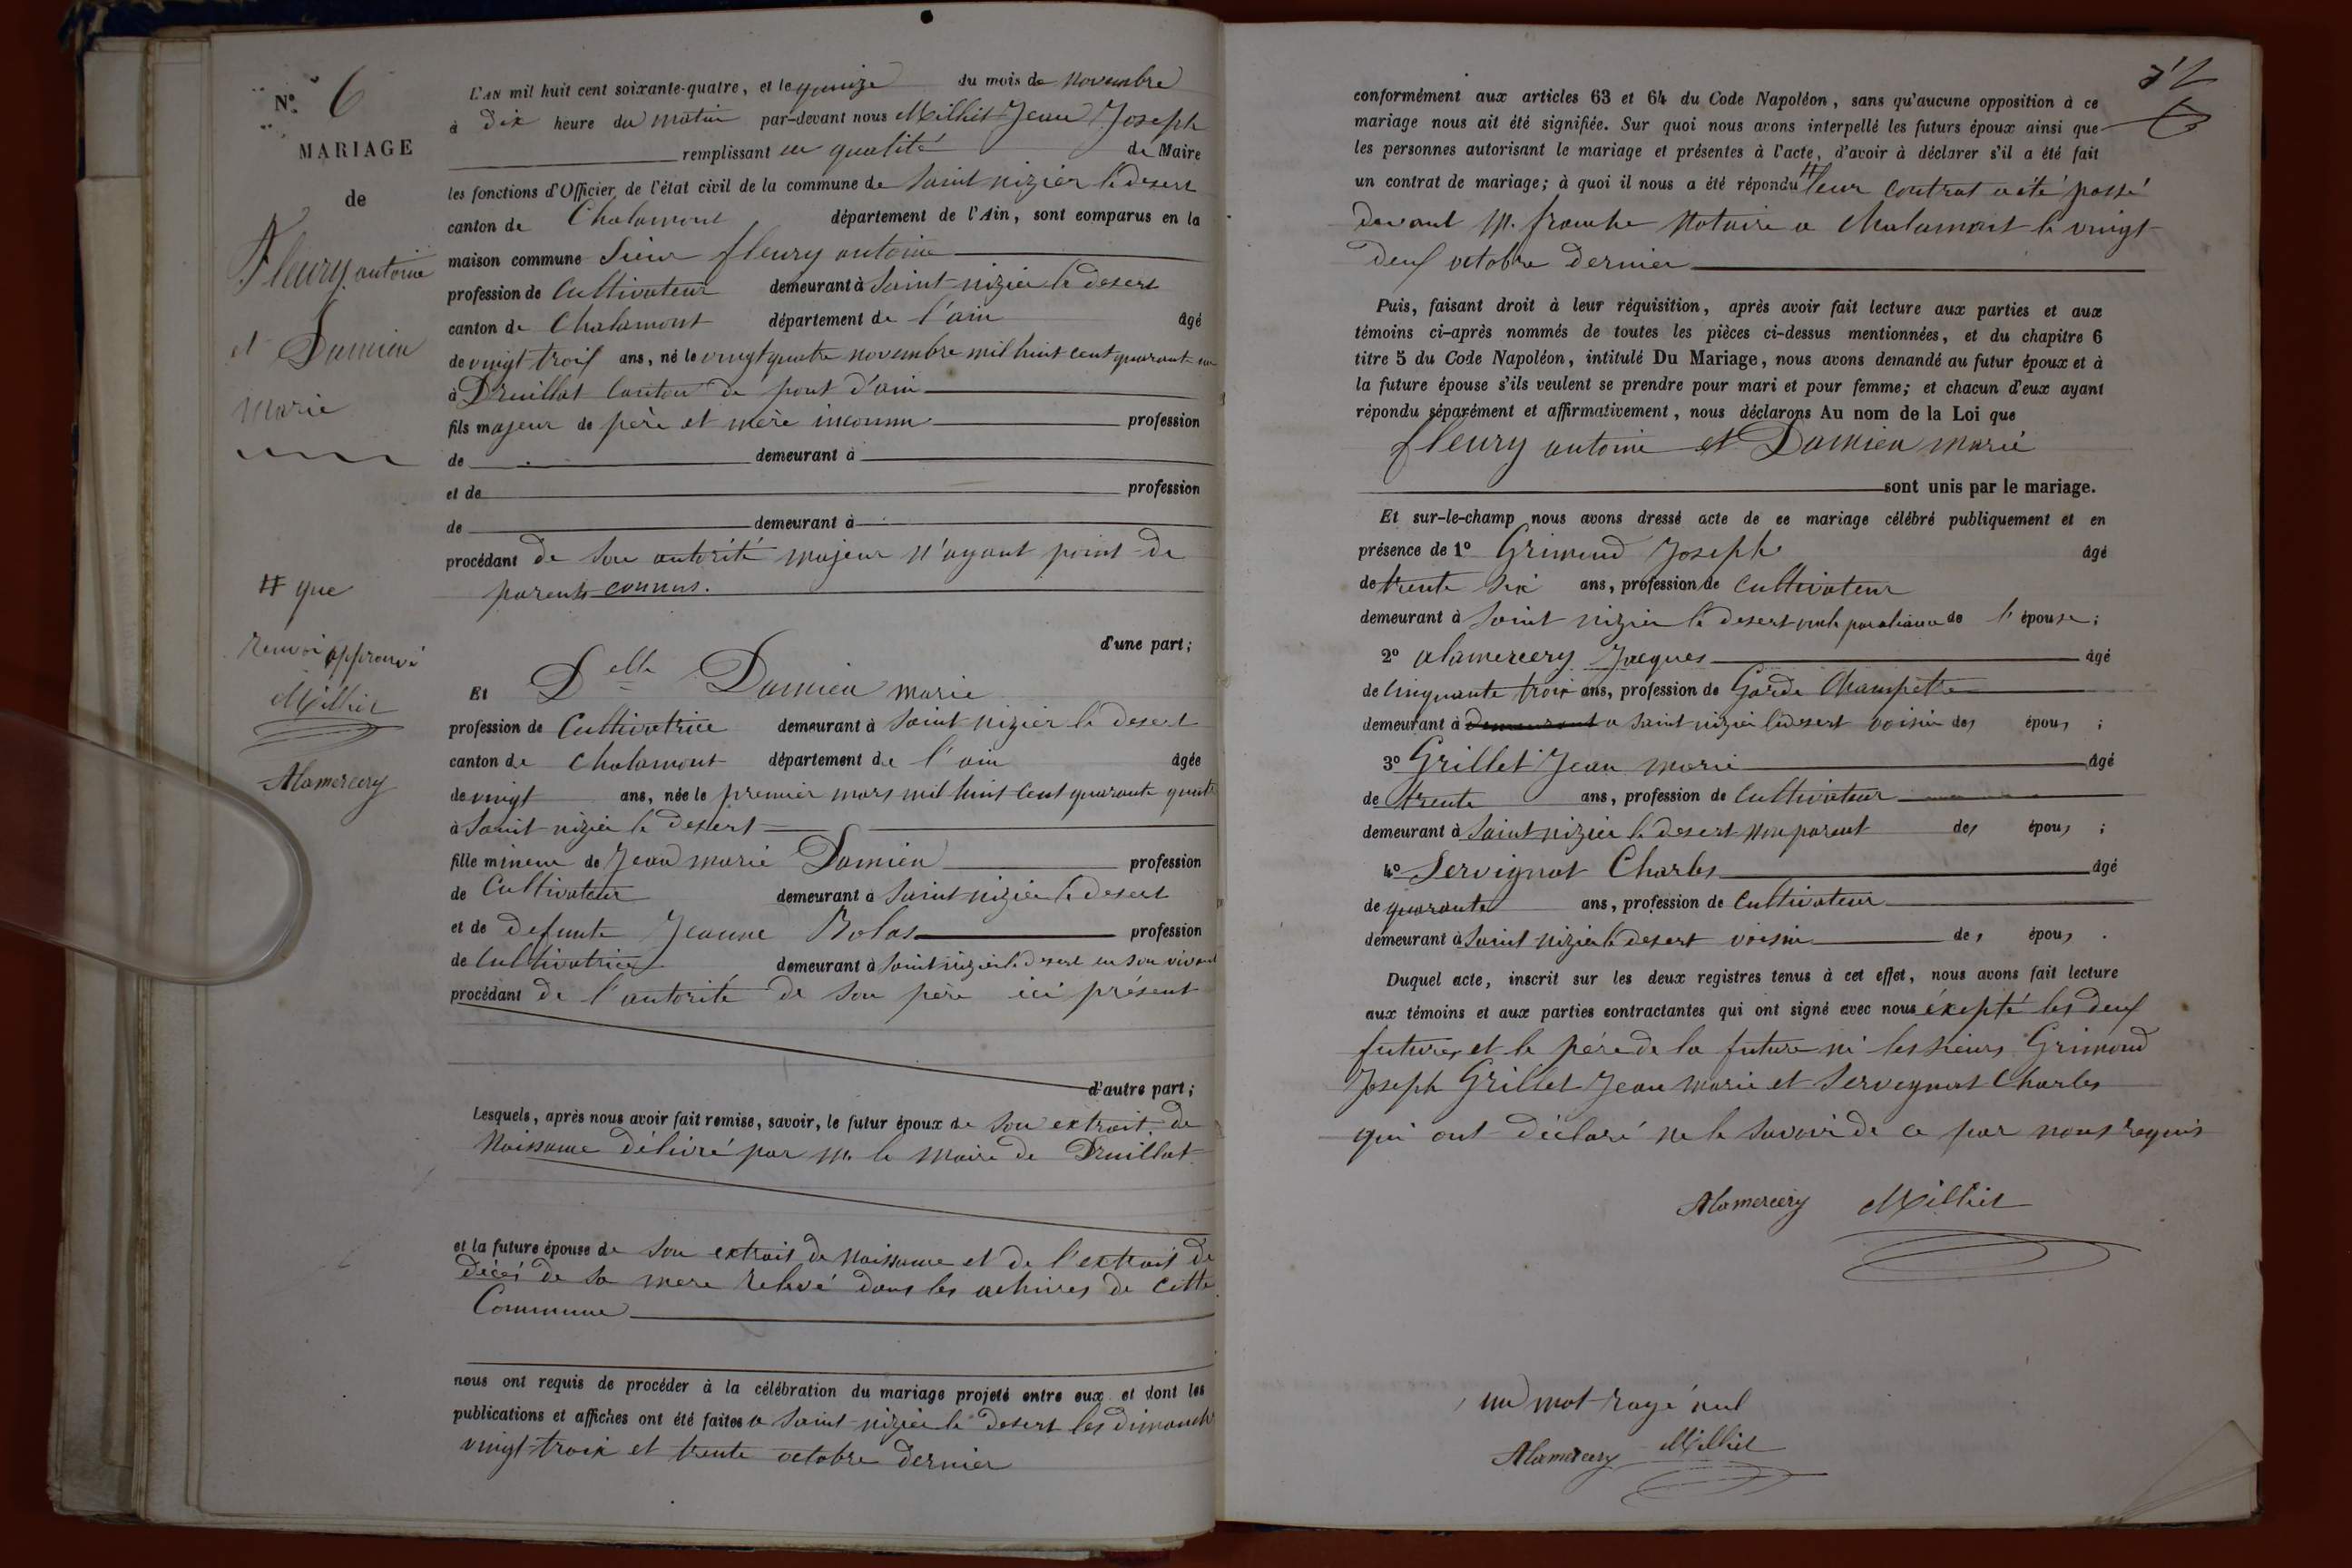 N° 6
MARIAGE
de
Fleury antoine
et Damien
marie
# que
renvoi approuvé
Milliet
Alamercery
L'AN mil huit cent soixante-quatre, et le quinze du mois de novembre
à dix heure du matin par-devant nous Milliet Jean Joseph
remplissant en qualité de Maire
les fonctions d'Officier de l'état civil de la commune de Saint nizier le desert
canton de Chalamont département de l'Ain, sont comparus en la
maison commune Sieur fleury antoine
profession de Cultivateur demeurant à Saint nizier le desert
canton de Chalamont département de l'ain âgé
de vingt trois ans, né le vingt quatre novembre mil huit cent quarante un
à Druillat Canton de pont d'ain
fils majeur de père et mère inconnu profession
de demeurant à
et de profession
de demeurant à
procédant de son autorité majeur n'ayant point de
parents connus.
d'une part;
Et Delle Damien marie
profession de Cultivatrice demeurant à Saint nizier le desert
canton de Chalamont département de l'ain âgée
de vingt ans, née le premier mars mil huit cent quarante quatre
à Saint nizier le desert
fille mineur de Jean marie Damien profession
de Cultivateur demeurant à Saint nizier le desert
et de defunte Jeanne Bolas profession
de Cultivatrice demeurant à Saint nizier le desert en son vivant
procédant de l'autorité de son père ici présent
d'autre part;
Lesquels, après nous avoir fait remise, savoir, le futur époux de son extrait de
Naissance délivré par m. le maire de Druillat
et la future épouse de son extrait de Naissance et de l'extrait de
décés de sa mere relevé dans les achives de cette
Commune
nous ont requis de procéder à la célébration du mariage projeté entre eux et dont les
publications et affiches ont été faites a Saint nizier le desert les dimanch
vingt trois et trente octobre dernier
conformément aux articles 63 et 64 du Code Napoléon, sans qu'aucune opposition à ce
mariage nous ait été signifiée. Sur quoi nous avons interpellé les futurs époux ainsi que
les personnes autorisant le mariage et présentes à l'acte, d'avoir à déclarer s'il a été fait
un contrat de mariage; à quoi il nous a été répondu # leur contrat a été passé
devant M. franche Notaire a Chalamont le vingt
deux octobre dernier
Puis, faisant droit à leur réquisition, après avoir fait lecture aux parties et aux
témoins ci-après nommés de toutes les pièces ci-dessus mentionnées, et du chapitre 6
titre 5 du Code Napoléon, intitulé Du Mariage, nous avons demandé au futur époux et à
la future épouse s'ils veulent se prendre pour mari et pour femme; et chacun d'eux ayant
répondu séparément et affirmativement, nous déclarons Au nom de la Loi que
fleury antoine et Damien marie
sont unis par le mariage.
Et sur-le-champ nous avons dressé acte de ce mariage célébré publiquement et en
présence de 1° Grimoud Joseph âgé
de trente six ans, profession de Cultivateur
demeurant à Saint nizier le desert par aliance de l'épouse;
2° Alamercery Jacques âgé
de Cinquante trois ans, profession de Garde Champêtre
demeurant à demeurant a Saint nizier le desert voisin des épous ;
3° Grillet Jean marie âgé
de trente ans, profession de Cultivateur
demeurant à Saint nizier le desert non parent des épous ;
4° Servignat Charles âgé
de quarante ans, profession de Cultivateur
demeurant à Saint nizier le desert voisin des épous .
Duquel acte, inscrit sur les deux registres tenus à cet effet, nous avons fait lecture
aux témoins et aux parties contractantes qui ont signé avec nous éxcepté les deux
futures et le père de la future ni les sieurs Grimoud
Joseph Grillet Jean marie et Servegnat Charles
qui ont déclaré ne le savoir de ce par nous requis
Alamercery Milliet
un mot rayé nul
Alamercery Milliet